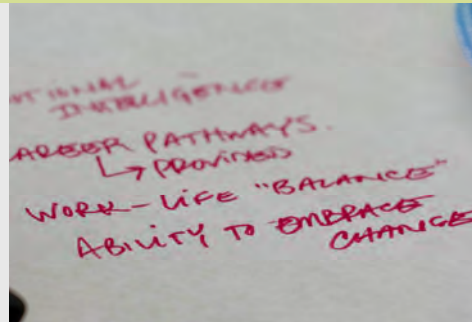 OTIONAL
INTELLIGENCE
CAREER PATHWAYS.
↳ PROVIDED
WORK-LIFE "BALANCE"
ABILITY TO EMBRACE
CHANGE